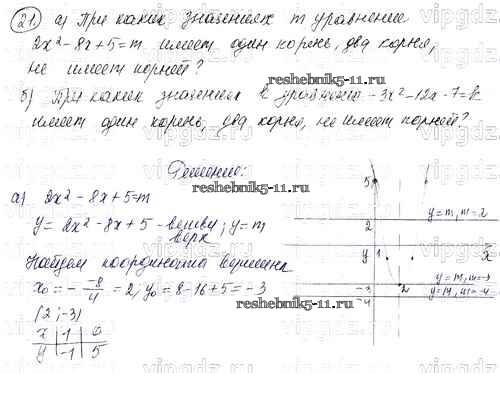 21. а) При каких значениях m уравнение
2x² - 8x + 5 = m имеет один корень, два корня,
не имеет корней?
reshebnik5-11.ru
б) При каких значениях k уравнение -3x² - 12x - 7 = k
имеет один корень, два корня, не имеет корней?
Решение:
reshebnik5-11.ru
а) 2x² - 8x + 5 = m
y = 2x² - 8x + 5 - ветви ; y = m
верх
Найдем координаты вершины
x₀ = - -8/4 = 2, y₀ = 8 - 16 + 5 = -3
(2; -3)
x | 1 | 0
y | -1 | 5
reshebnik5-11.ru
5
y = m, m = 2
2
y 1
x
y = m, m = -3
-3
2
y = m, m = -4
-4